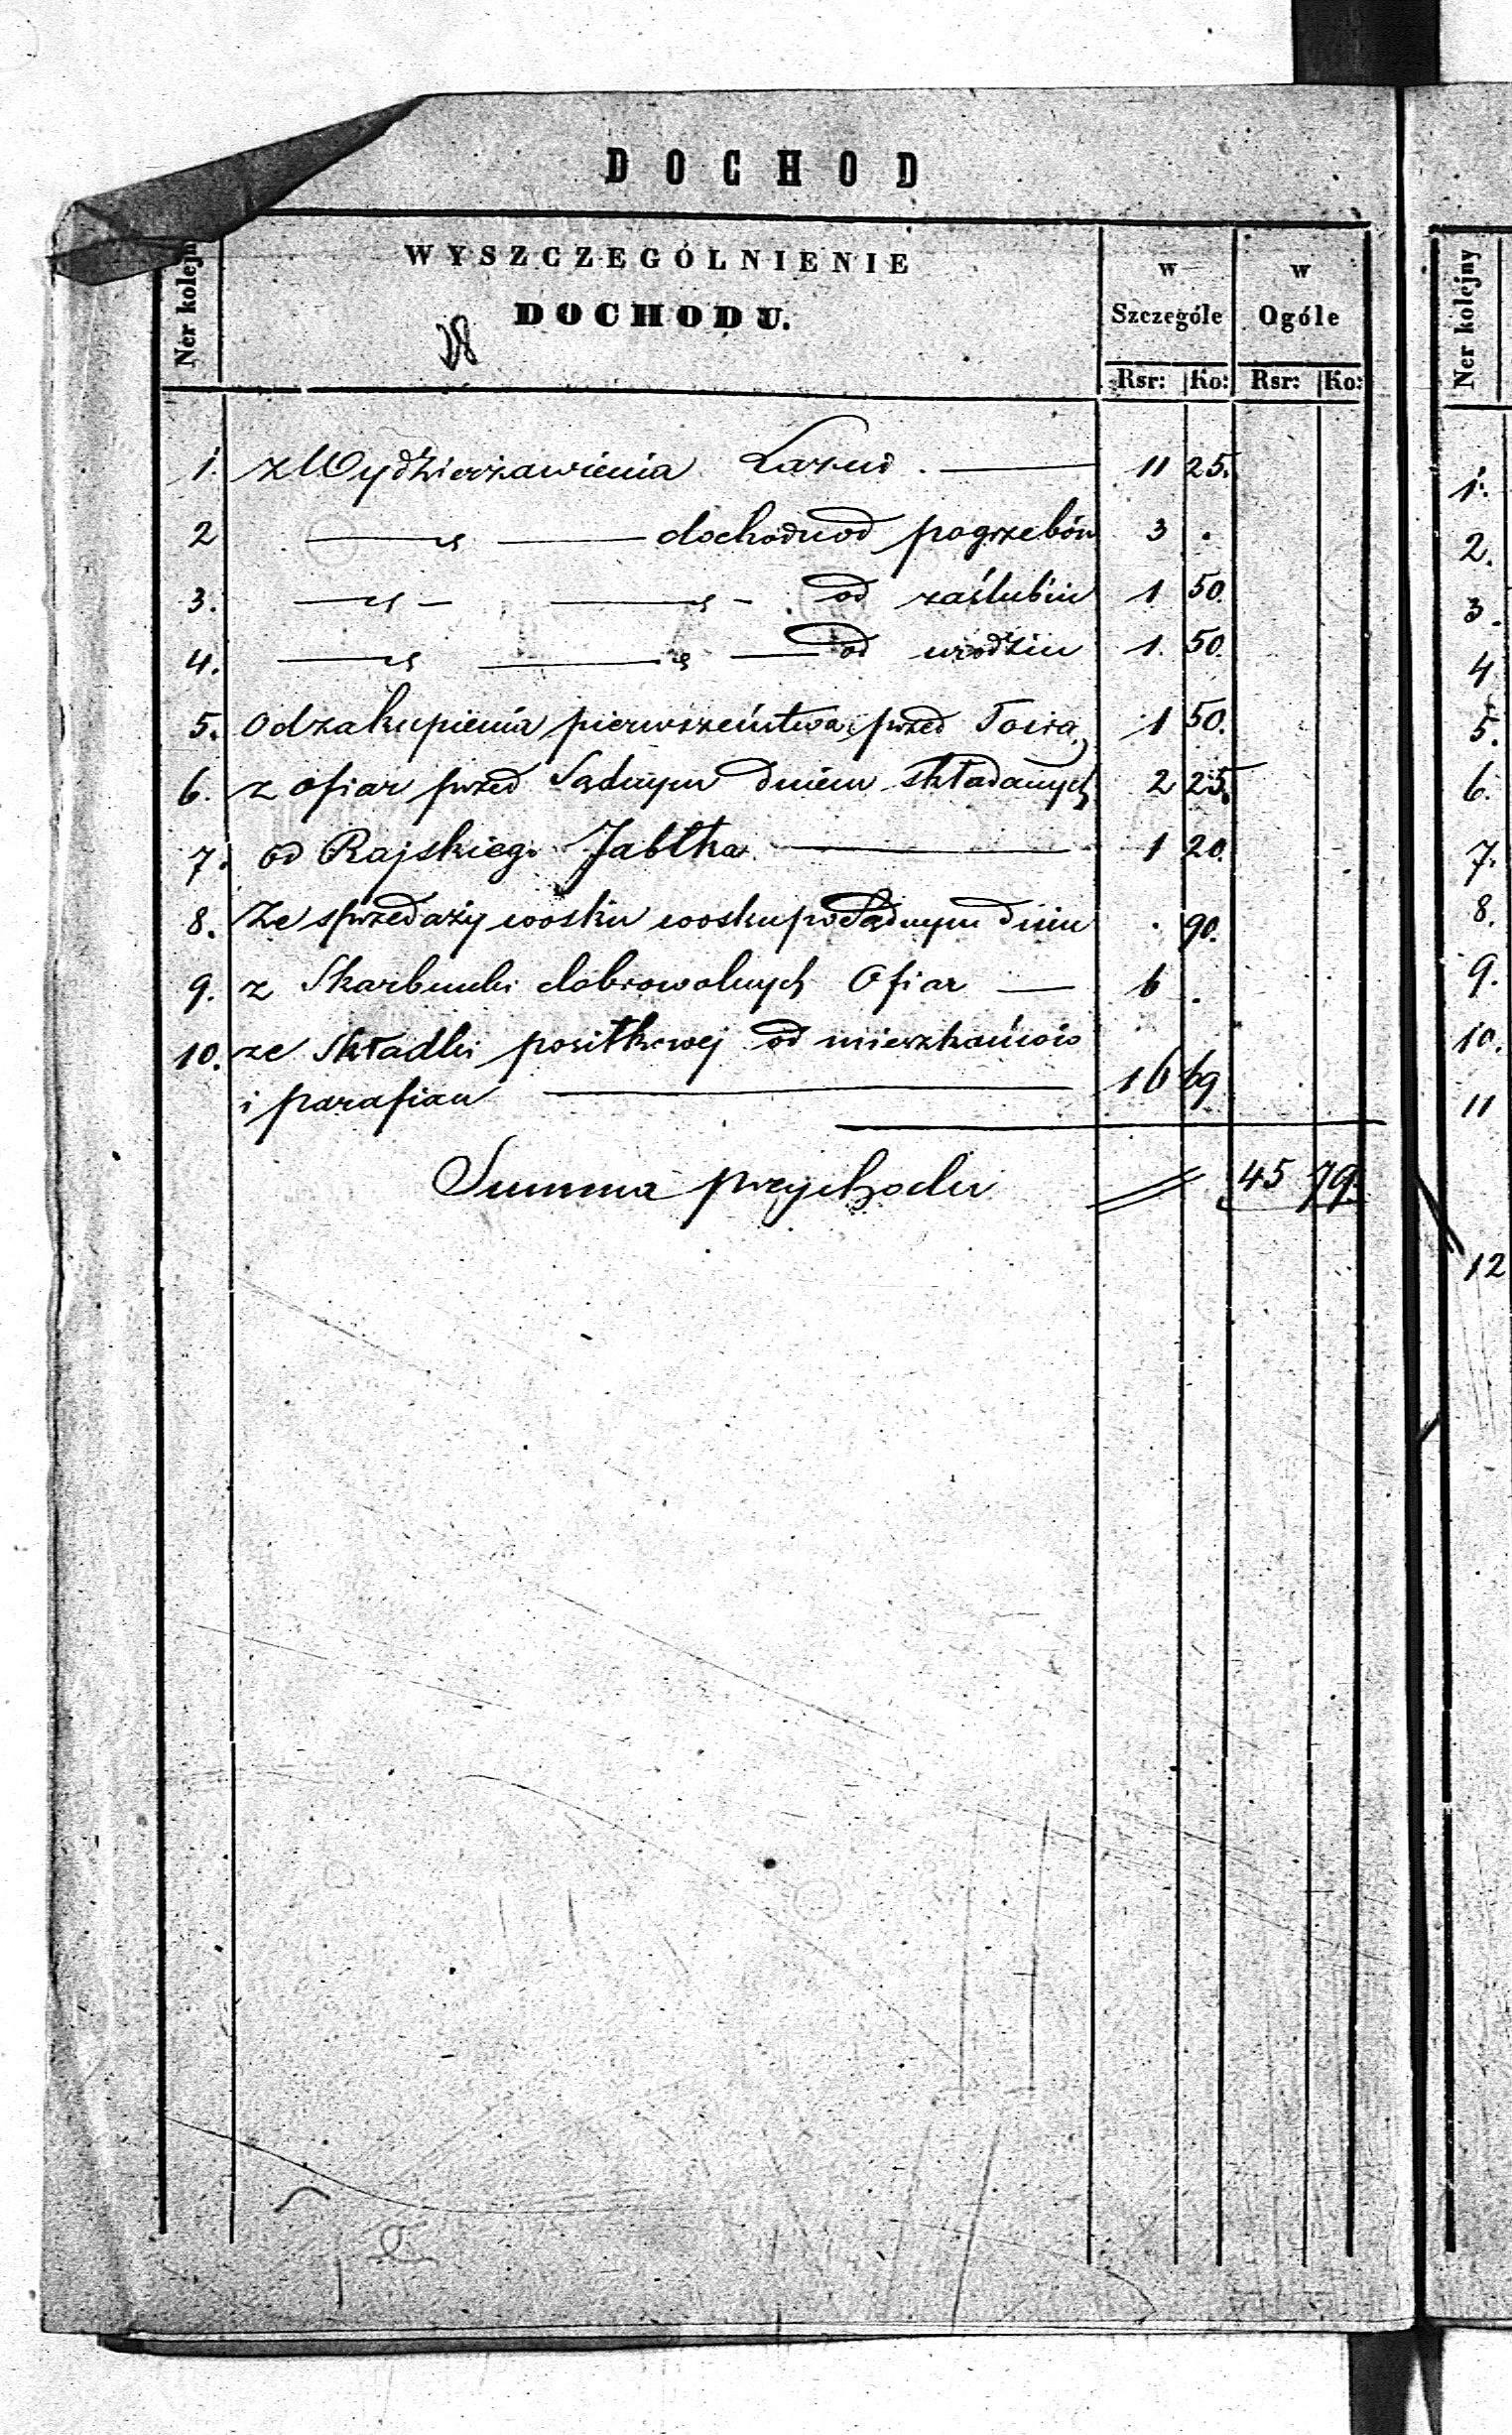 DOCHOD
Ner kolejn
WYSZCZEGÓLNIENIE
DOCHODU.
w Szczególe
w Ogóle
Rsr: Ko: Rsr: Ko:
1. z Wydzierzawienia Lazni. 11 25.
2 — „ — dochodu od pogrzebów 3 .
3. — „ — — „ — od zaślubin 1 50.
4. — „ — „ — od urodzin 1. 50.
5. Od zakupienia pierwszeństwa przed Torą 1 50.
6. z ofiar przed Sądnym dniem składanych 2 25.
7. od Rajskiego Jabłka 1 20.
8. Ze sprzedaży wosku wosku po Sądnym dniu . 90.
9. z Skarbonki dobrowolnych Ofiar — 6 .
10. ze Składki posiłkowej od mieszkańców
i parafian 16 69
Summa przychodu 45 79.
Ner kolejny
1.
2.
3.
4
5.
6.
7.
8.
9.
10.
11
12